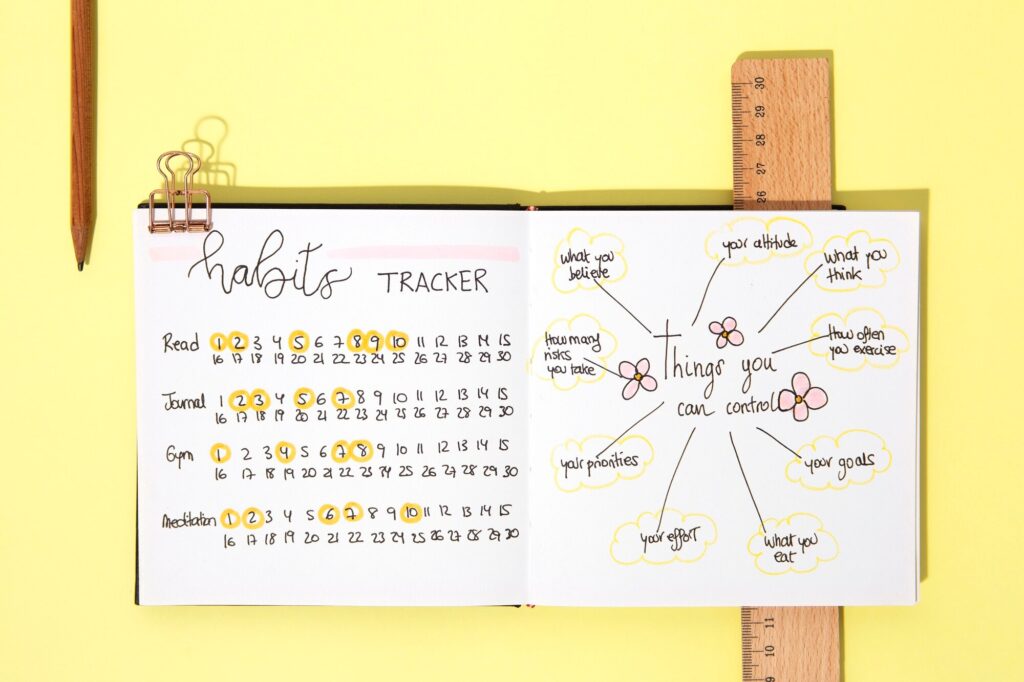 habits TRACKER
Read 1 2 3 4 5 6 7 8 9 10 11 12 13 14 15
16 17 18 19 20 21 22 23 24 25 26 27 28 29 30
Journal 1 2 3 4 5 6 7 8 9 10 11 12 13 14 15
16 17 18 19 20 21 22 23 24 25 26 27 28 29 30
Gym 1 2 3 4 5 6 7 8 9 10 11 12 13 14 15
16 17 18 19 20 21 22 23 24 25 26 27 28 29 30
Meditation 1 2 3 4 5 6 7 8 9 10 11 12 13 14 15
16 17 18 19 20 21 22 23 24 25 26 27 28 29 30
what you
believe
your attitude
What you
think
How many
risks
you take
How often
you exercise
Things you
can control
your priorities
your goals
your effort
what you
eat
30
29
28
27
26
11
10
9